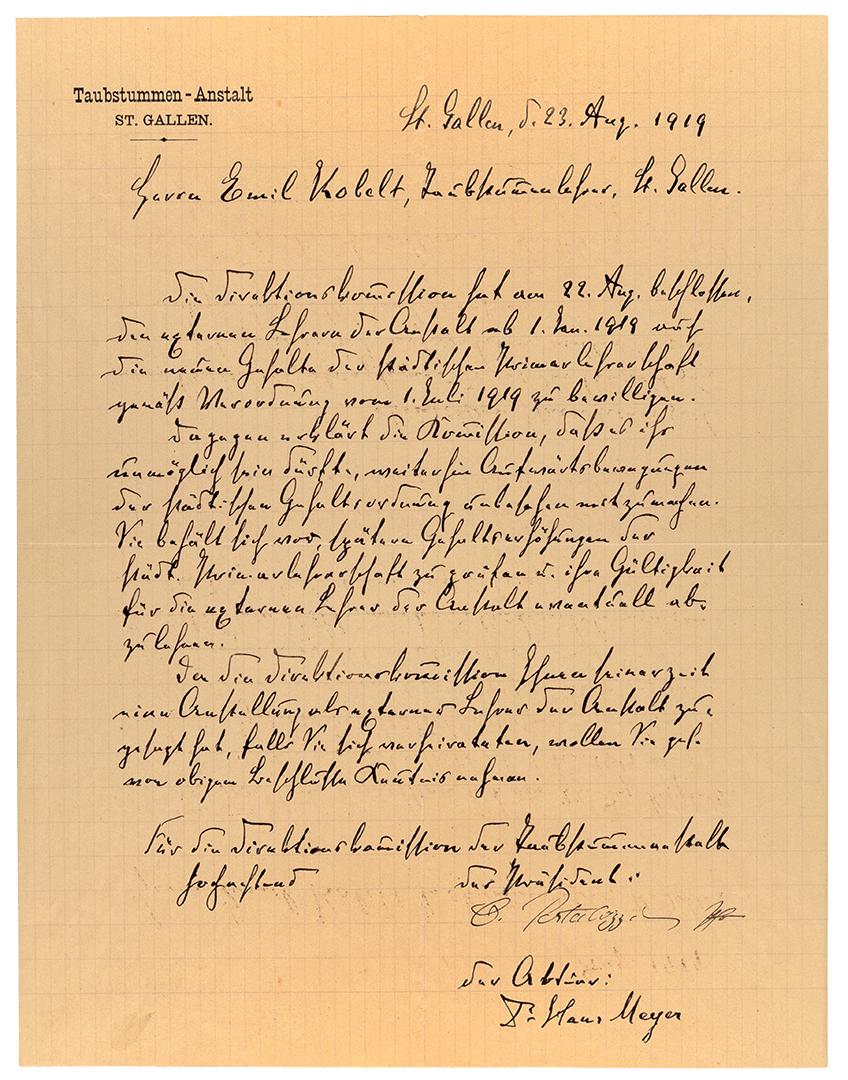 Taubstummen-Anstalt
ST. GALLEN.
St. Gallen, d. 23. Aug. 1919
Herrn Emil Kobelt, Taubstummenlehrer, St. Gallen.
Die Direktionskom̅ission hat am 22. Aug. beschlossen,
den externen Lehrern der Anstalt ab 1. Jan. 1919 auch
die neuen Gehalte der städtischen Primarlehrerschaft
gemäß Verordnung vom 1. Juli 1919 zu bewilligen.
Dagegen erklärt die Kom̅ission, daß es ihr
unmöglich sein dürfte, weiterhin Aufwärtsbewegungen
der städtischen Gehaltsordnung unbesehen mitzumachen.
Sie behält sich vor, spätere Gehaltserhöhungen der
städt. Primarlehrerschaft zu prüfen u. ihre Gültigkeit
für die externen Lehrer der Anstalt eventuell ab-
zulehnen.
Da die Direktionskom̅ission Ihnen seinerzeit
eine Anstellung als externer Lehrer der Anstalt zu-
gesagt hat, falls Sie sich verheirateten, wollen Sie gefl.
von obigem Beschlusse Kenntnis nehmen.
Für die Direktionskom̅ission der Taubstum̅enanstalt
hochachtend
der Präsident:
Pestalozzi
der Aktuar:
Dr Hans Meyer